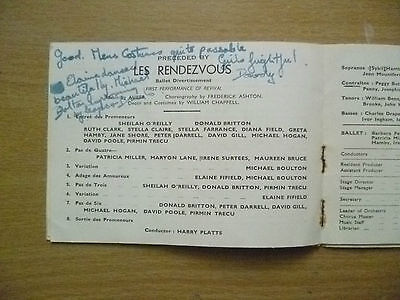 Good. Mens Costumes quite passable
Quite frightful!
Bloody
Elaine dances
beautifully. Michael
PRECEDED BY
LES RENDEZVOUS
Ballet Divertissement
FIRST PERFORMANCE OF REVIVAL
Choreography by FREDERICK ASHTON
Decor and Costumes by WILLIAM CHAPPELL
1. Entree des Promeneurs
SHEILAH O'REILLY DONALD BRITTON
RUTH CLARE, STELLA CLAIRE, STELLA FARRANCE, DIANA FIELD, GRETA
HAMBY, JANE SHORE, PETER DARRELL, DAVID GILL, MICHAEL HOGAN,
DAVID POOLE, PIRMIN TRECU
2. Pas de Quatre—
PATRICIA MILLER, MARYON LANE, TRENE SURTEES, MAUREEN BRUCE
3. Variation MICHAEL BOULTON
4. Adage des Amoureux ELAINE FIFIELD, MICHAEL BOULTON
5. Pas de Trois SHEILAH O'REILLY, DONALD BRITTON, PIRMIN TRECU
6. Variation ELAINE FIFIELD
7. Pas de Six DONALD BRITTON, PETER DARRELL, DAVID GILL,
MICHAEL HOGAN, DAVID POOLE, PIRMIN TRECU
8. Sortie des Promeneurs
Conductor : HARRY PLATTS
Sopranos
Jean Mountfor
Contraltos : Peggy But
Tenors : William Bern
Brooks, John
Basses : Charles Drape
Ivor Ingham,
BALLET : Barbara Fe
Conductors
Resident Producer
Assistant Producer
Stage Director
Stage Manager
Secretary
Leader of Orchestra
Chorus Master
Music Staff
Librarian